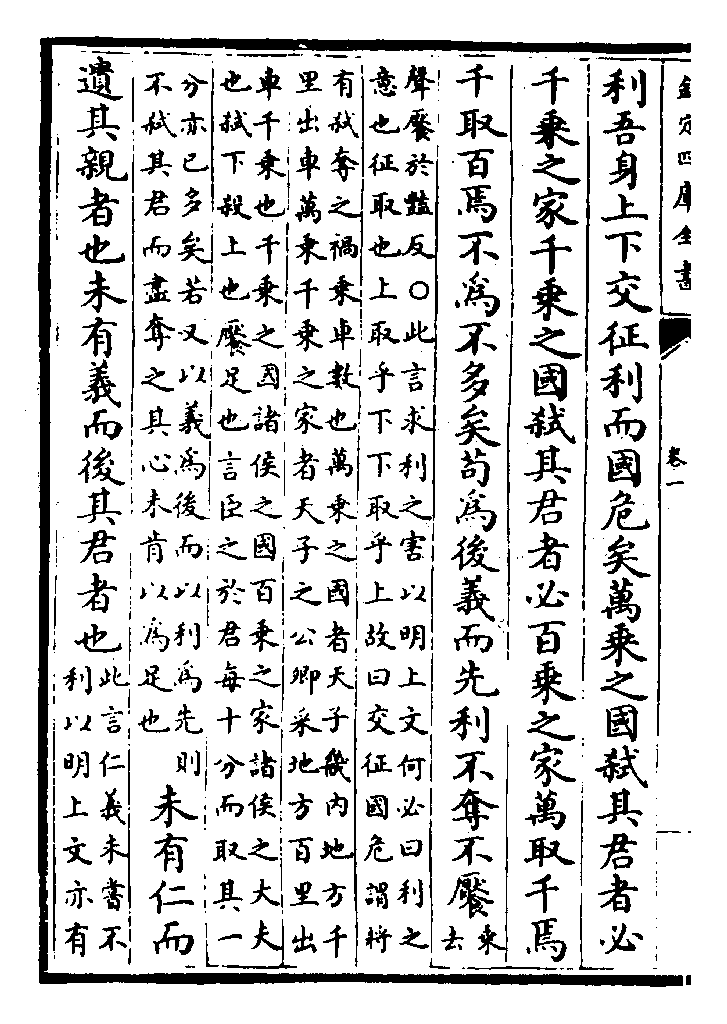 欽定四庫全書
卷一
利吾身上下交征利而國危矣萬乘之國弑其君者必
千乘之家千乘之國弑其君者必百乘之家萬取千焉
千取百焉不為不多矣苟為後義而先利不奪不饜乘
去
聲饜於豔反○此言求利之害以明上文何必曰利之
意也征取也上取乎下下取乎上故曰交征國危謂將
有弑奪之禍乘車數也萬乘之國者天子畿內地方千
里出車萬乘千乘之家者天子之公卿采地方百里出
車千乘也千乘之國諸侯之國百乘之家諸侯之大夫
也弑下殺上也饜足也言臣之於君每十分而取其一
分亦已多矣若又以義為後而以利為先則
不弑其君而盡奪之其心未肯以為足也
未有仁而
遺其親者也未有義而後其君者也此言仁義未嘗不
利以明上文亦有